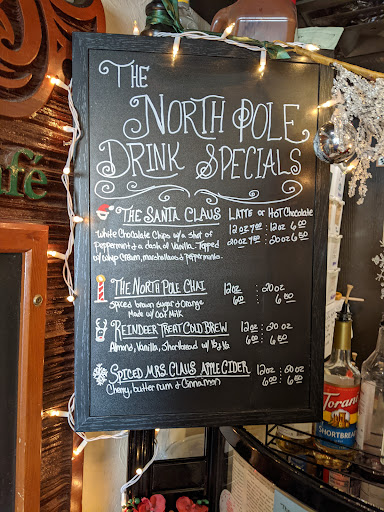 THE
NORTH POLE
DRINK SPECIALS
THE SANTA CLAUS LATTE or HOT Chocolate
White Chocolate Chips w/ a shot of
Peppermint & a dash of Vanilla. Topped
w/ whip cream, marshmallows & peppermints.
12oz : 12oz 6.00
20oz : 20oz 6.50
THE NORTH POLE CHAI 12oz : 20oz
6.00 : 6.50
Spiced brown sugar & orange
Made w/ oat Milk
REINDEER TREAT COLD BREW 12oz : 20oz
6.00 : 6.50
Almond, Vanilla, Shortbread w/
SPICED MRS. CLAUS APPLE CIDER 12oz : 20oz
6.00 : 6.50
Cherry, butter rum & Cinnamon
afé
Torani
SHORTBREAD